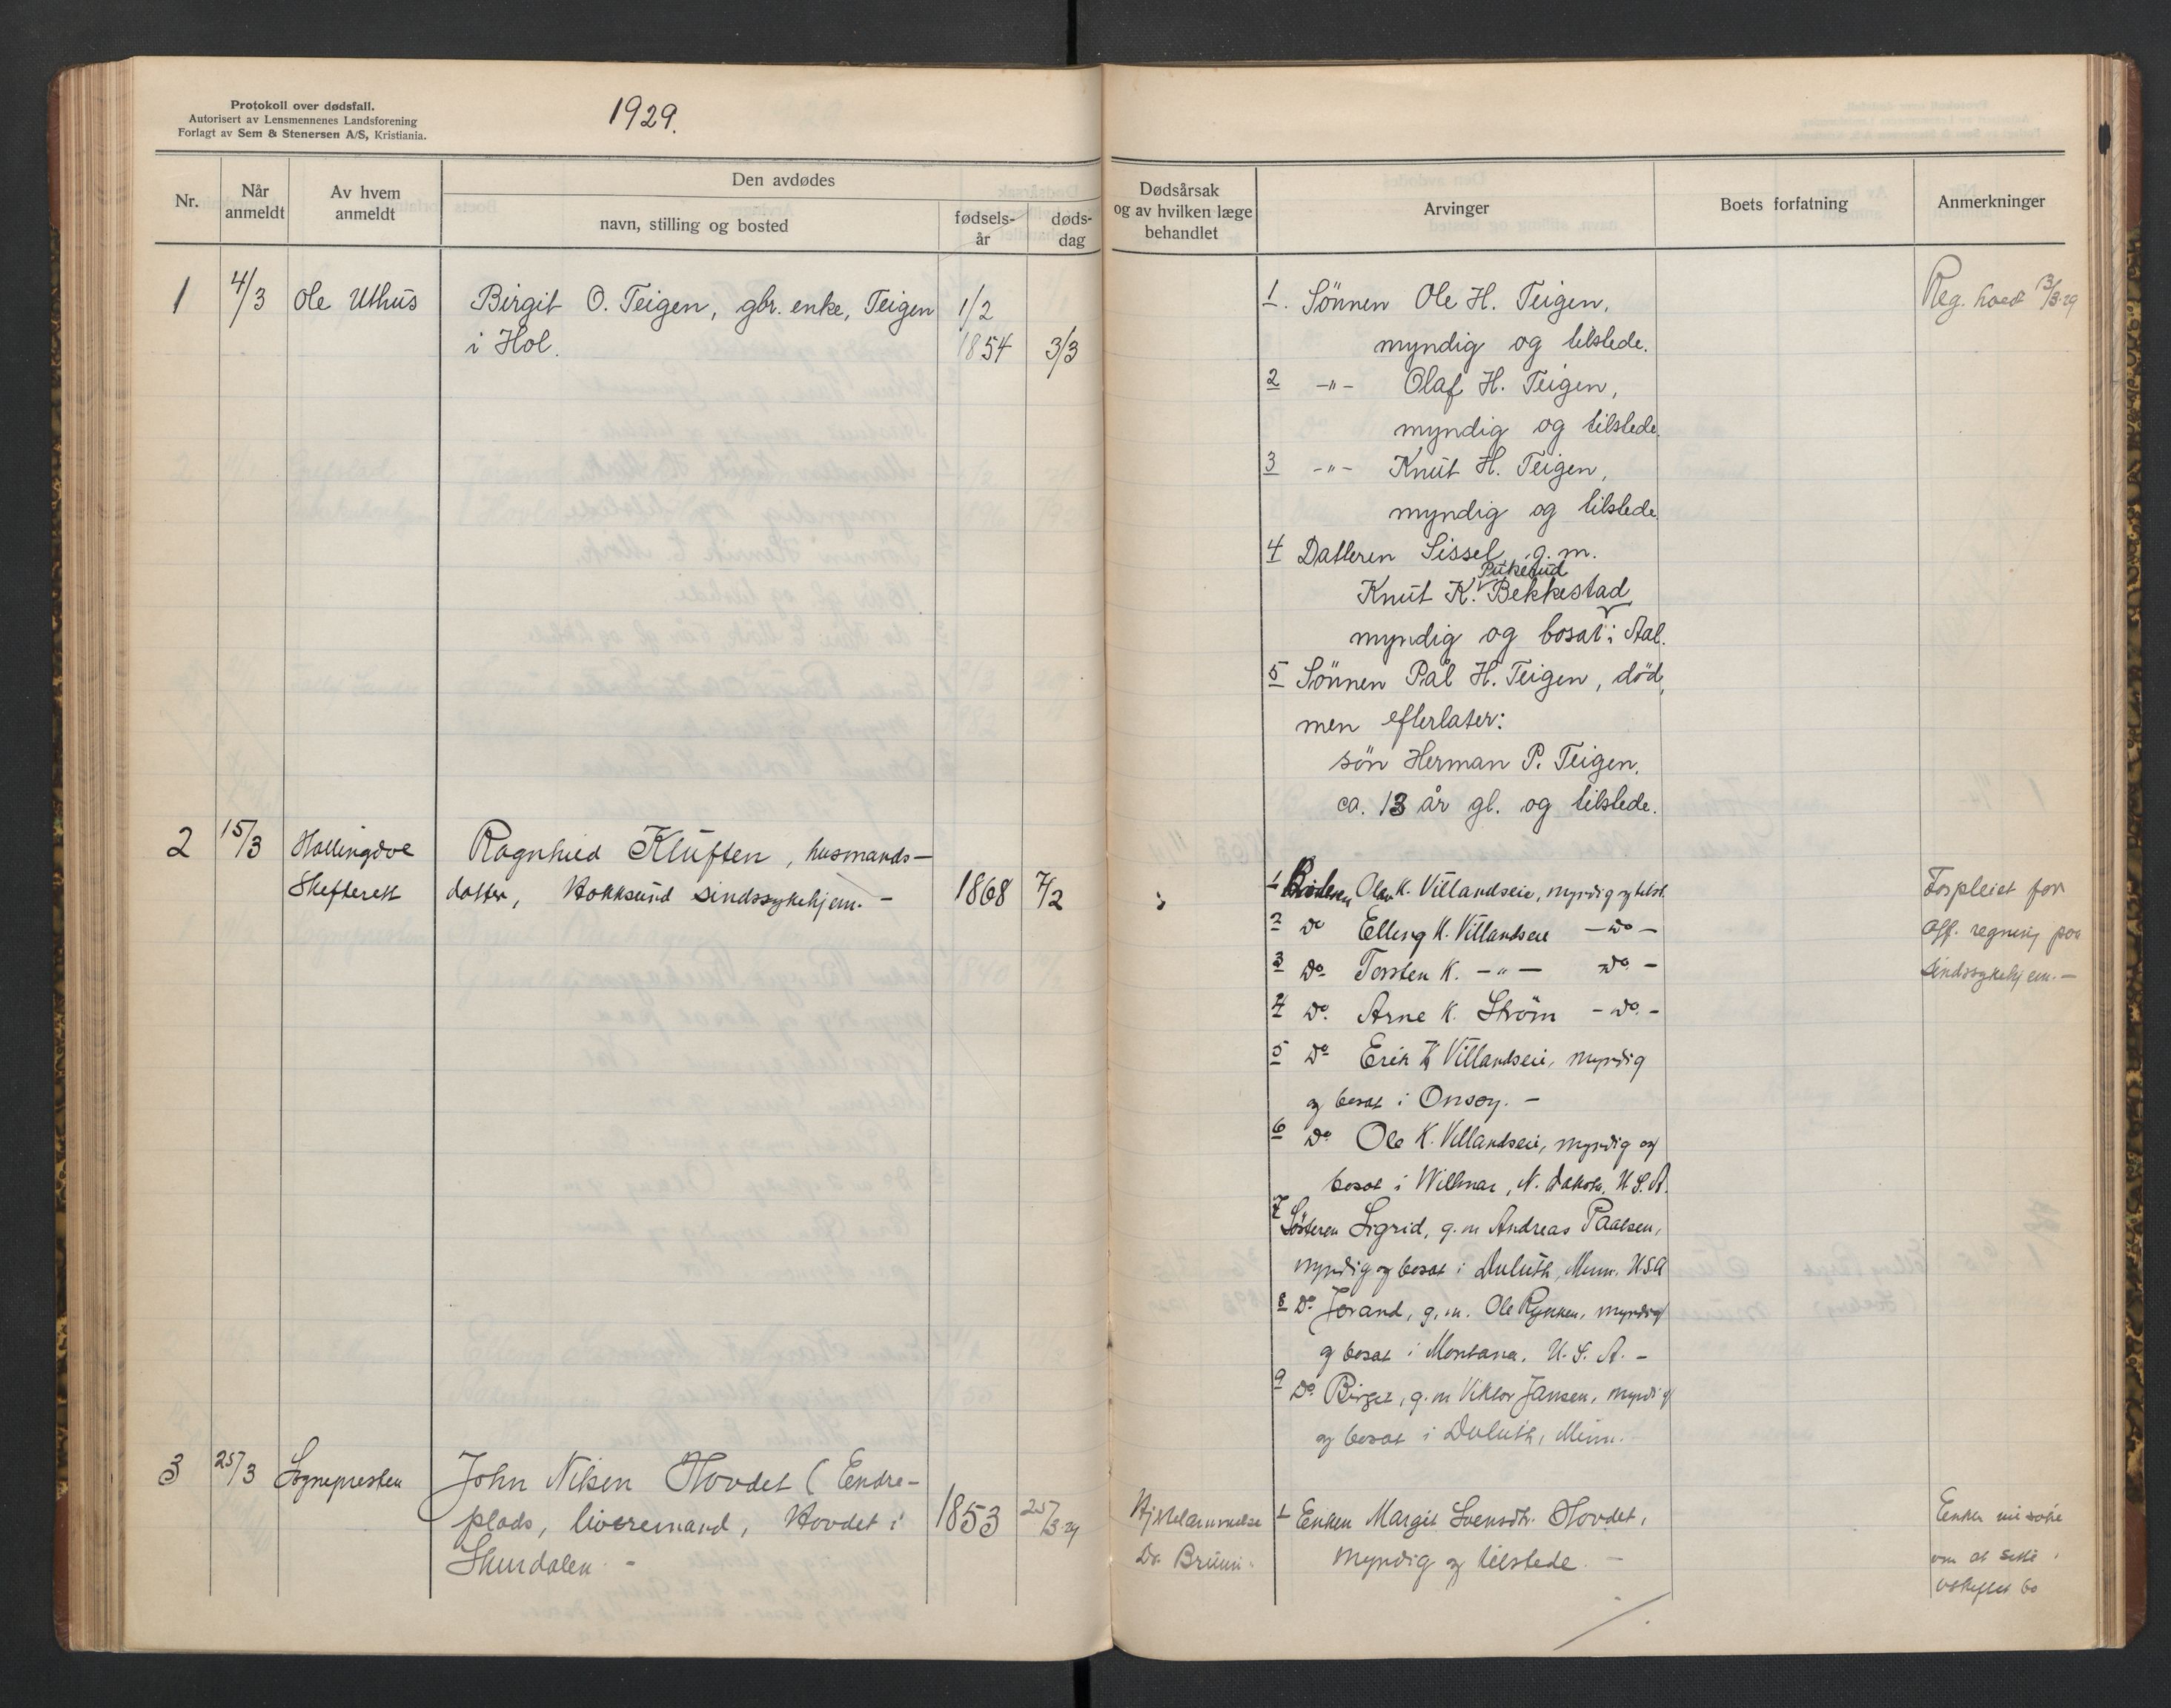 Protokoll over dødsfall.
Autorisert av Lensmennenes Landsforening
Forlagt av Sem & Stenersen A/S, Kristiania.
1929.
Nr.
Når anmeldt
Av hvem anmeldt
Den avdødes
navn, stilling og bosted
fødsels-år
døds-dag
Dødsårsak og av hvilken læge behandlet
Arvinger
Boets forfatning
Anmerkninger
1 4/3 Ole Uthus Birgit O. Teigen, gbr. enke, Teigen 1/2
i Hol. 1854 3/3
1. Sönnen Ole H. Teigen,
myndig og tilstede.
2 -"- Olaf H. Teigen,
myndig og tilstede.
3 -"- Knut H. Teigen,
myndig og tilstede.
4 Datteren Sissel, g.m.
Pukerud
Knut K. Bekkestad,
myndig og bosat i Aal.
5 Sönnen Pål H. Teigen, död,
men efterlater:
sön Herman P. Teigen,
ca. 13 år gl. og tilstede.
Reg. hoed 13/3 29
2 15/3 Hallingdal Ragnhild Kluften, husmands-
Skifterett datter, Hokksund sindssykehjem. - 1868 7/2
1 Broderen Olav K. Villandseie, myndig og tilst.
2 Do Elling K. Villandseie - Do -
3 Do. Torsten K. - " - Do. -
4 Do. Arne K. Ström - Do. -
5 Do Erik K Villandseie, myndig
og bosat i Onsøy. -
6 Do Ole K. Villandseie, myndig og
bosat i Willmar, N. Dakota, U.S.A.
7 Søsteren Sigrid, g.m Andreas Paalsen,
myndig og bosat i Duluth, Minn. USA
8 Do Jorand, g.m. Ole Rykken, myndig
og bosat i Montana. U.S.A. -
9 Do. Birget, g.m Viktor Jansen, myndig
og bosat i Duluth, Minn.
Forpleiet for
off. regning paa
sindssykehjem. -
3 25/3 Sognepresten John Nilsen Hovdet (Endre-
plads, livøremand, Hovdet i 1853 25/3 29
Skurdalen. -
Hjertelammelse
Dr. Bruun.
1 Enken Margit Svensdtr. Hovdet,
myndig og tilstede. -
Enken
om at sitte i
uskiftet bo